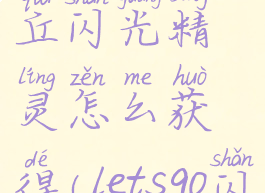 丘闪光精
líng zěn me huò
灵怎么获
dé shǎn
得(Lets90闪